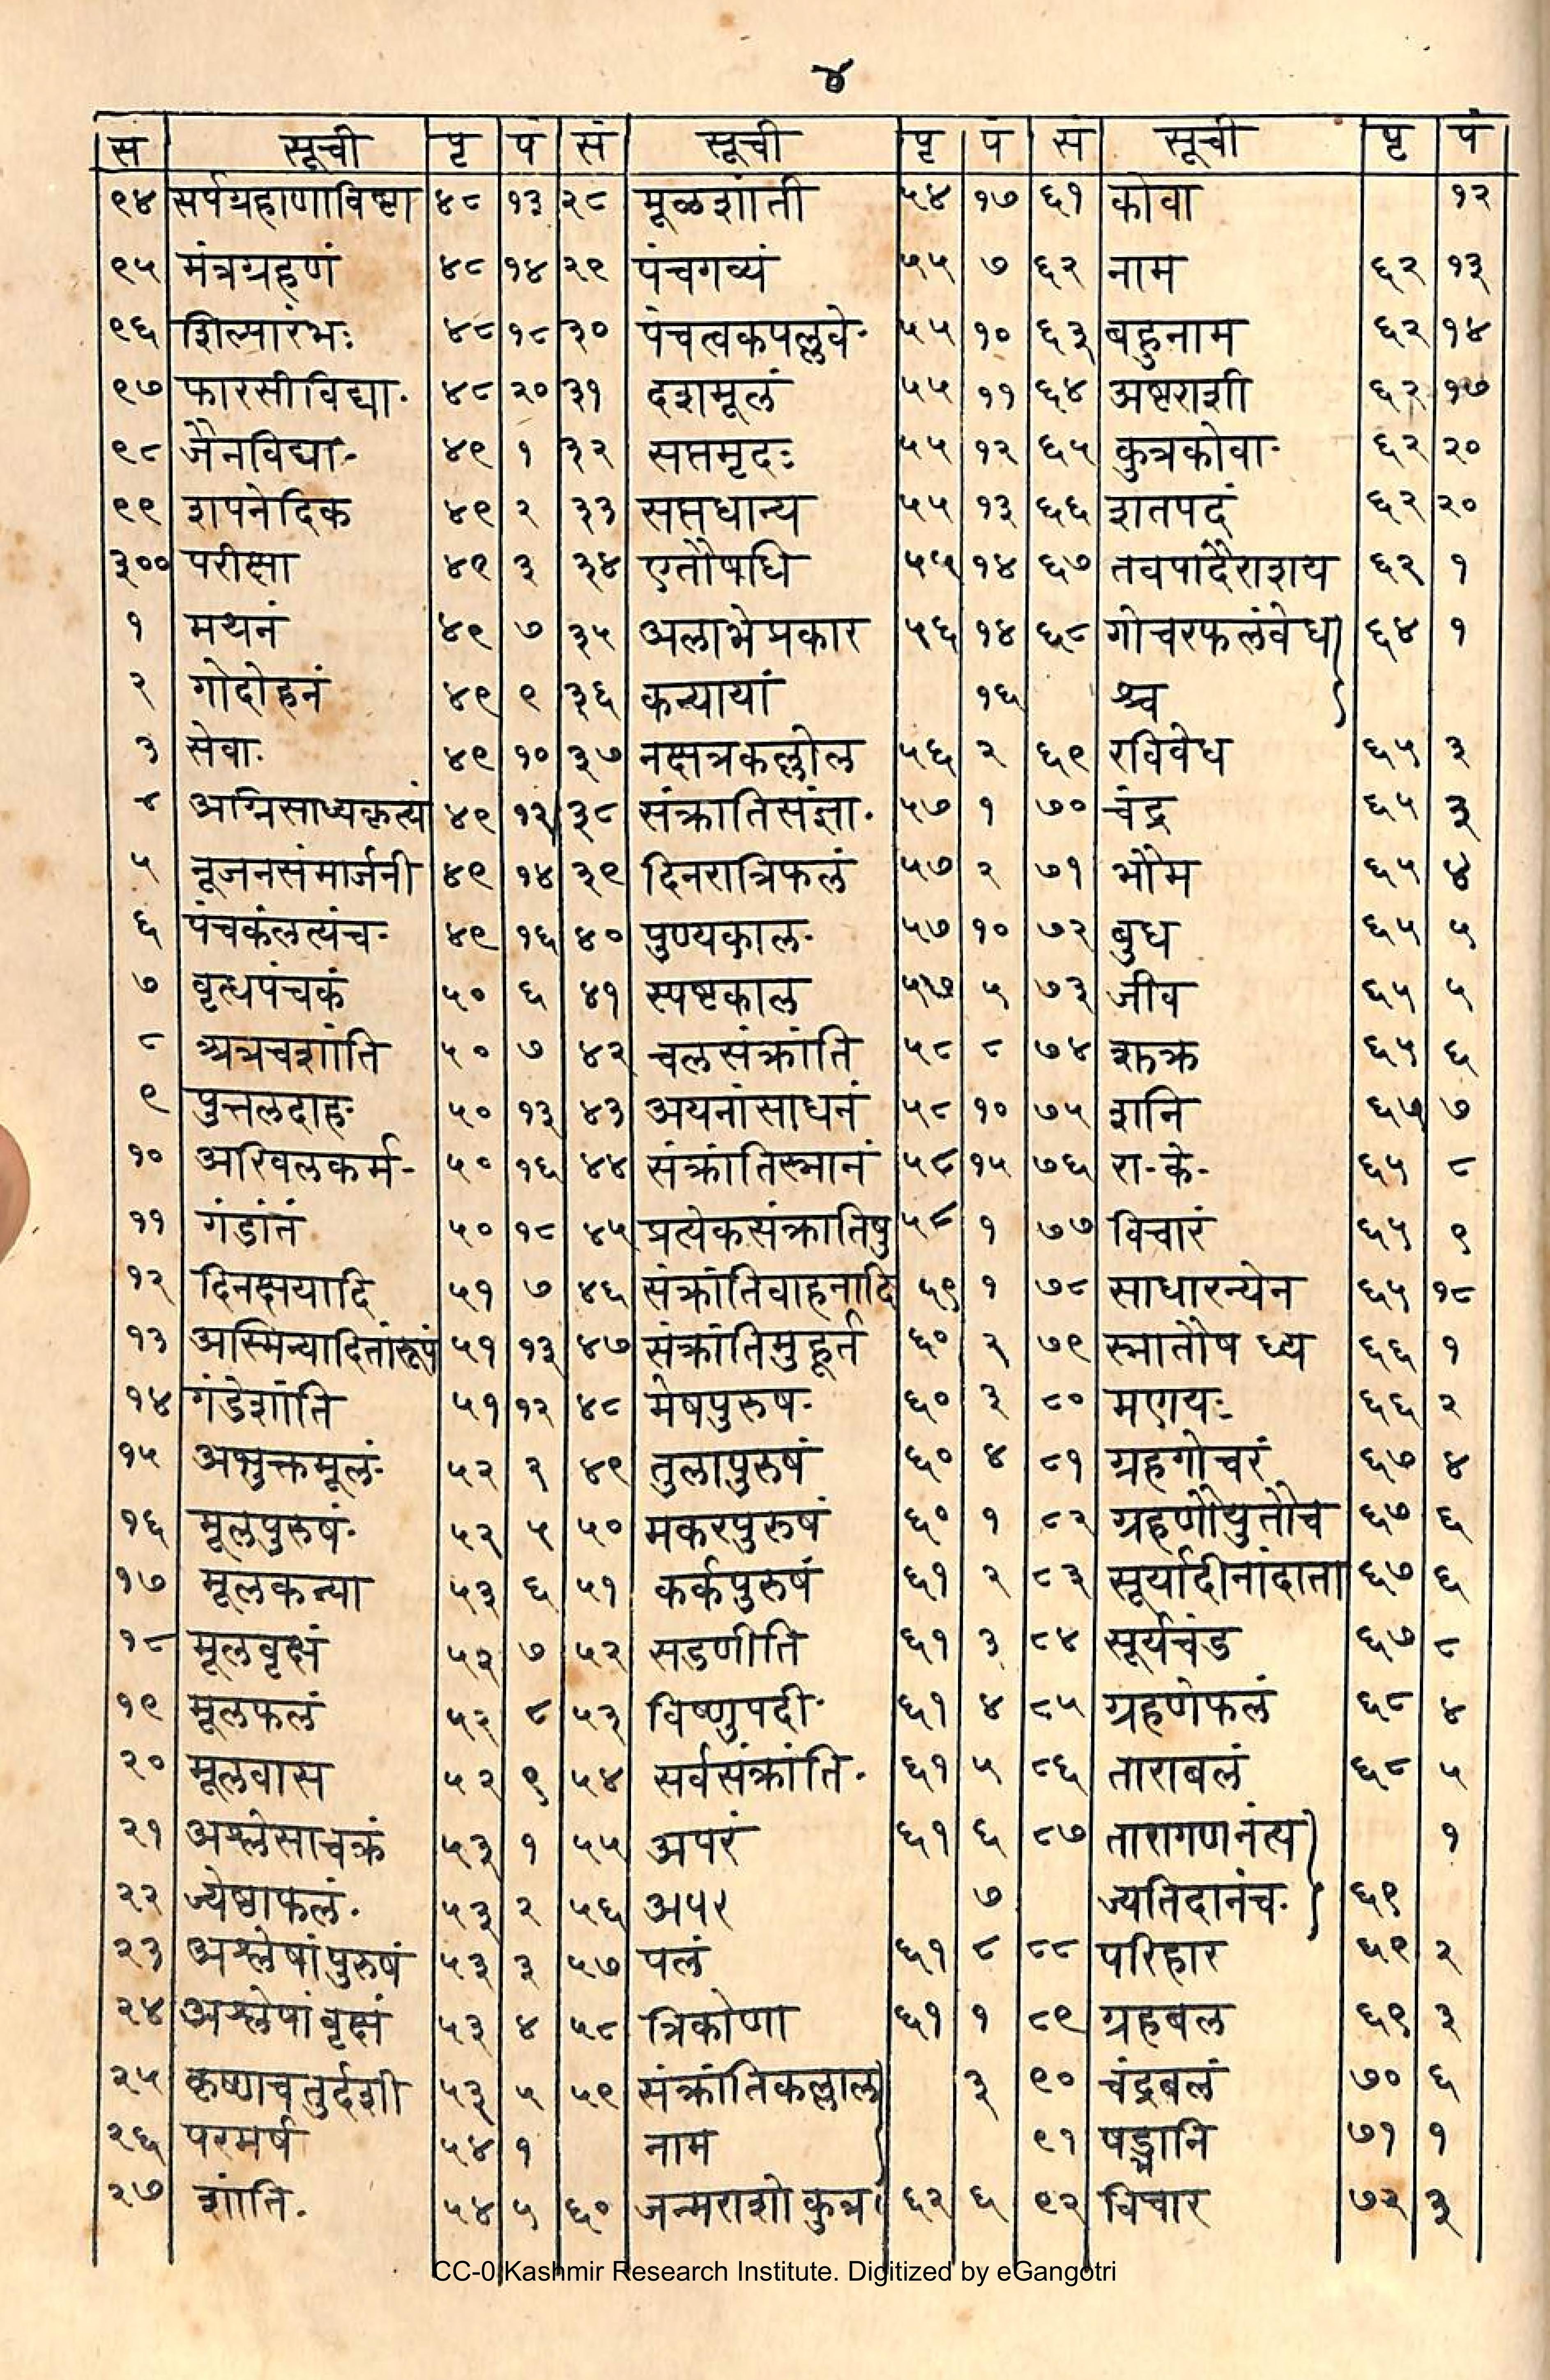 ४
स सूची पृ प सं सूची पृ प स सूची पृ पं
९४ सर्पग्रहाणाविष्टा ४८ १३ २८ मूळशांती ५४ १७ ६१ कोवा १२
९५ मंत्रग्रहणं ४८ १४ २९ पंचगव्यं ५५ ७ ६२ नाम ६२ १३
९६ शिल्पारंभः ४८ १८ ३० पंचत्वकपल्लवे· ५५ १० ६३ बहुनाम ६२ १४
९७ फारसीविद्या· ४८ २० ३१ दशमूलं ५५ ११ ६४ अष्टराशी ६२ १७
९८ जैनविद्या- ४९ १ ३२ सप्तमृदः ५५ १२ ६५ कुत्रकोवा· ६२ २०
९९ शपनेदिक ४९ २ ३३ सप्तधान्य ५५ १३ ६६ शतपदं ६२ २०
३०० परीक्षा ४९ ३ ३४ एतौषधि ५५ १४ ६७ तवपादैराशय ६२ १
१ मथनं ४९ ७ ३५ अलाभेप्रकार ५६ १४ ६८ गोचरफलंवेध ६४ १
२ गोदोहनं ४९ ९ ३६ कन्यायां १६ श्च
३ सेवा· ४९ १० ३७ नक्षत्रकल्लोल ५६ २ ६९ रविवेध ६५ ३
४ अग्निसाध्यकृत्यं ४९ १२ ३८ संक्रातिसंज्ञा· ५७ १ ७० चंद्र ६५ ३
५ नूजनसंमार्जनी ४९ १४ ३९ दिनरात्रिफलं ५७ २ ७१ भौम ६५ ४
६ पंचकंलत्यंच· ४९ १६ ४० पुण्यकाल· ५७ १० ७२ बुध ६५ ५
७ वृत्धपंचकं ५० ६ ४१ स्पष्टकाल ५७ ५ ७३ जीव ६५ ५
८ अत्रचशांति ५० ७ ४२ चलसंक्रांति ५८ ८ ७४ शुक्र ६५ ६
९ पुत्तलदाह· ५० १३ ४३ अयनांसाधनं ५८ १० ७५ शनि ६५ ७
१० अखिलकर्म- ५० १६ ४४ संक्रांतिस्नानं ५८ १५ ७६ रा-के- ६५ ८
११ गंडांतं ५० १८ ४५ प्रत्येकसंक्रातिपु ५८ १ ७७ विचारं ६५ ९
१२ दिनक्षयादि ५१ ७ ४६ संक्रांतिवाहनादि ५९ १ ७८ साधारन्येन ६५ १८
१३ अस्मिन्यादितांरूपं ५१ १३ ४७ संक्रांतिमुहूर्त ६० २ ७९ स्नातौष ध्य ६६ १
१४ गंडेशांति ५१ १२ ४८ मेषपुरुष· ६० ३ ८० मणयः ६६ २
१५ अभुक्तमूलं· ५२ ३ ४९ तुलापुरुषं ६० ४ ८१ ग्रहगोचरं ६७ ४
१६ मूलपुरुषं· ५२ ५ ५० मकरपुरुषं ६० १ ८२ ग्रहणौयुतौच ६७ ६
१७ मूलकन्या ५३ ६ ५१ कर्कपुरुषं ६१ २ ८३ सूर्यादीनांदाता ६७ ६
१८ मूलवृक्षं ५२ ७ ५२ सडणीति ६१ ३ ८४ सूर्यचंड ६७ ८
१९ मूलफलं ५२ ८ ५३ विष्णुपदी· ६१ ४ ८५ ग्रहणेफलं ६८ ४
२० मूलवास ५२ ९ ५४ सर्वसंक्रांति· ६१ ५ ८६ ताराबलं ६८ ५
२१ अश्लेसाचक्रं ५३ १ ५५ अपरं ६१ ६ ८७ तारागणनंत्य १
२२ ज्येष्ठाफलं· ५३ २ ५६ अपर ७ ज्यतिदानंच· ६९
२३ अश्लेषांपुरुषं ५३ ३ ५७ पलं ६१ ८ ८८ परिहार ६९ २
२४ अश्लेषांवृक्षं ५३ ४ ५८ त्रिकोणा ६१ १ ८९ ग्रहबल ६९ ३
२५ कृष्णचतुर्दशी ५३ ५ ५९ संक्रांतिकल्लाल ३ ९० चंद्रबलं ७० ६
२६ परमर्ष ५४ १ नाम ९१ षड्भानि ७१ १
२७ शांति· ५४ ५ ६० जन्मराशी कुत्र ६२ ६ ९२ विचार ७२ ३
CC-0 Kashmir Research Institute. Digitized by eGangotri